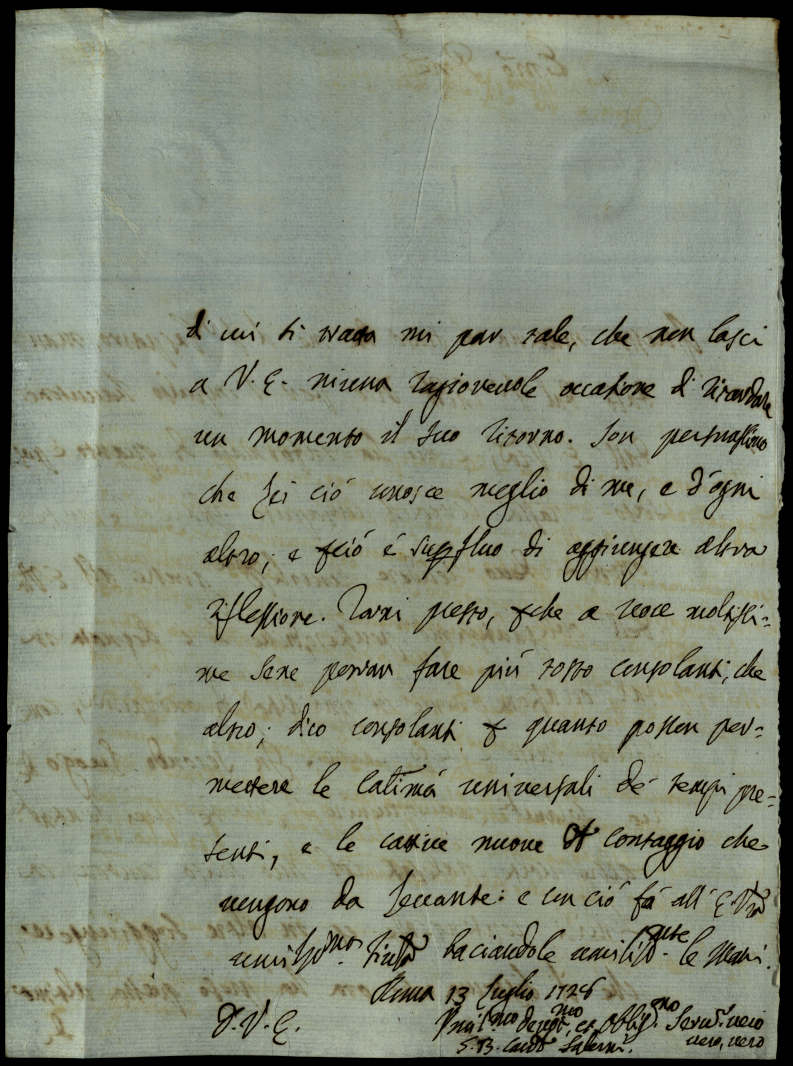 di cui si tratta mi par tale, che non lasci
a V. E. niuna ragionevole occasione di ritardare
un momento il suo ritorno. Son persuasissimo
che Lei ciò conosce meglio di me, e d'ogni
altro; e perciò è superfluo di aggiungere altra
riflessione. Torni presto, perche a voce moltissi=
me se ne potran fare più tosto consolanti, che
altro; dico consolanti per quanto posson per=
mettere le calimà universali de' tempi pre=
senti, e le cattive nuove di contaggio che
vengono da Levante: e con ciò fò all' E. Vra
umilissima rivza baciandole umilissmte le mani.
Roma 13 Luglio 1726
D. V. E.
devmo, ed obbligmo Servre vero
vero, vero
G. B. Card. Salerni.